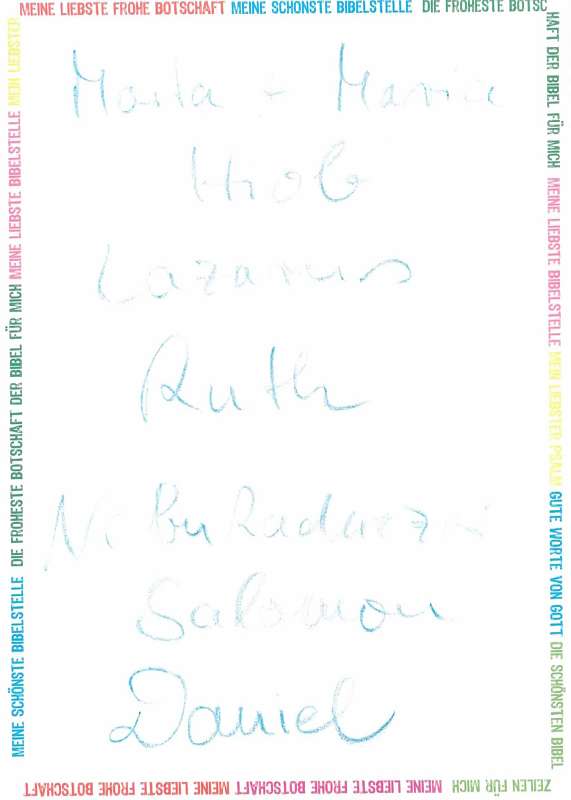 MEINE LIEBSTE FROHE BOTSCHAFT MEINE SCHÖNSTE BIBELSTELLE DIE FROHESTE BOTSC
HAFT DER BIBEL FÜR MICH MEINE LIEBSTE BIBELSTELLE MEIN LIEBSTER PSALM GUTE WORTE VON GOTT DIE SCHÖNSTEN BIBEL
ZEILEN FÜR MICH MEINE LIEBSTE FROHE BOTSCHAFT MEINE LIEBSTE FROHE BOTSCHAFT
MEINE SCHÖNSTE BIBELSTELLE DIE FROHESTE BOTSCHAFT DER BIBEL FÜR MICH MEINE LIEBSTE BIBELSTELLE MEIN LIEBSTER
Marta + Maria
Hiob
Lazarus
Ruth
Salomon
Daniel